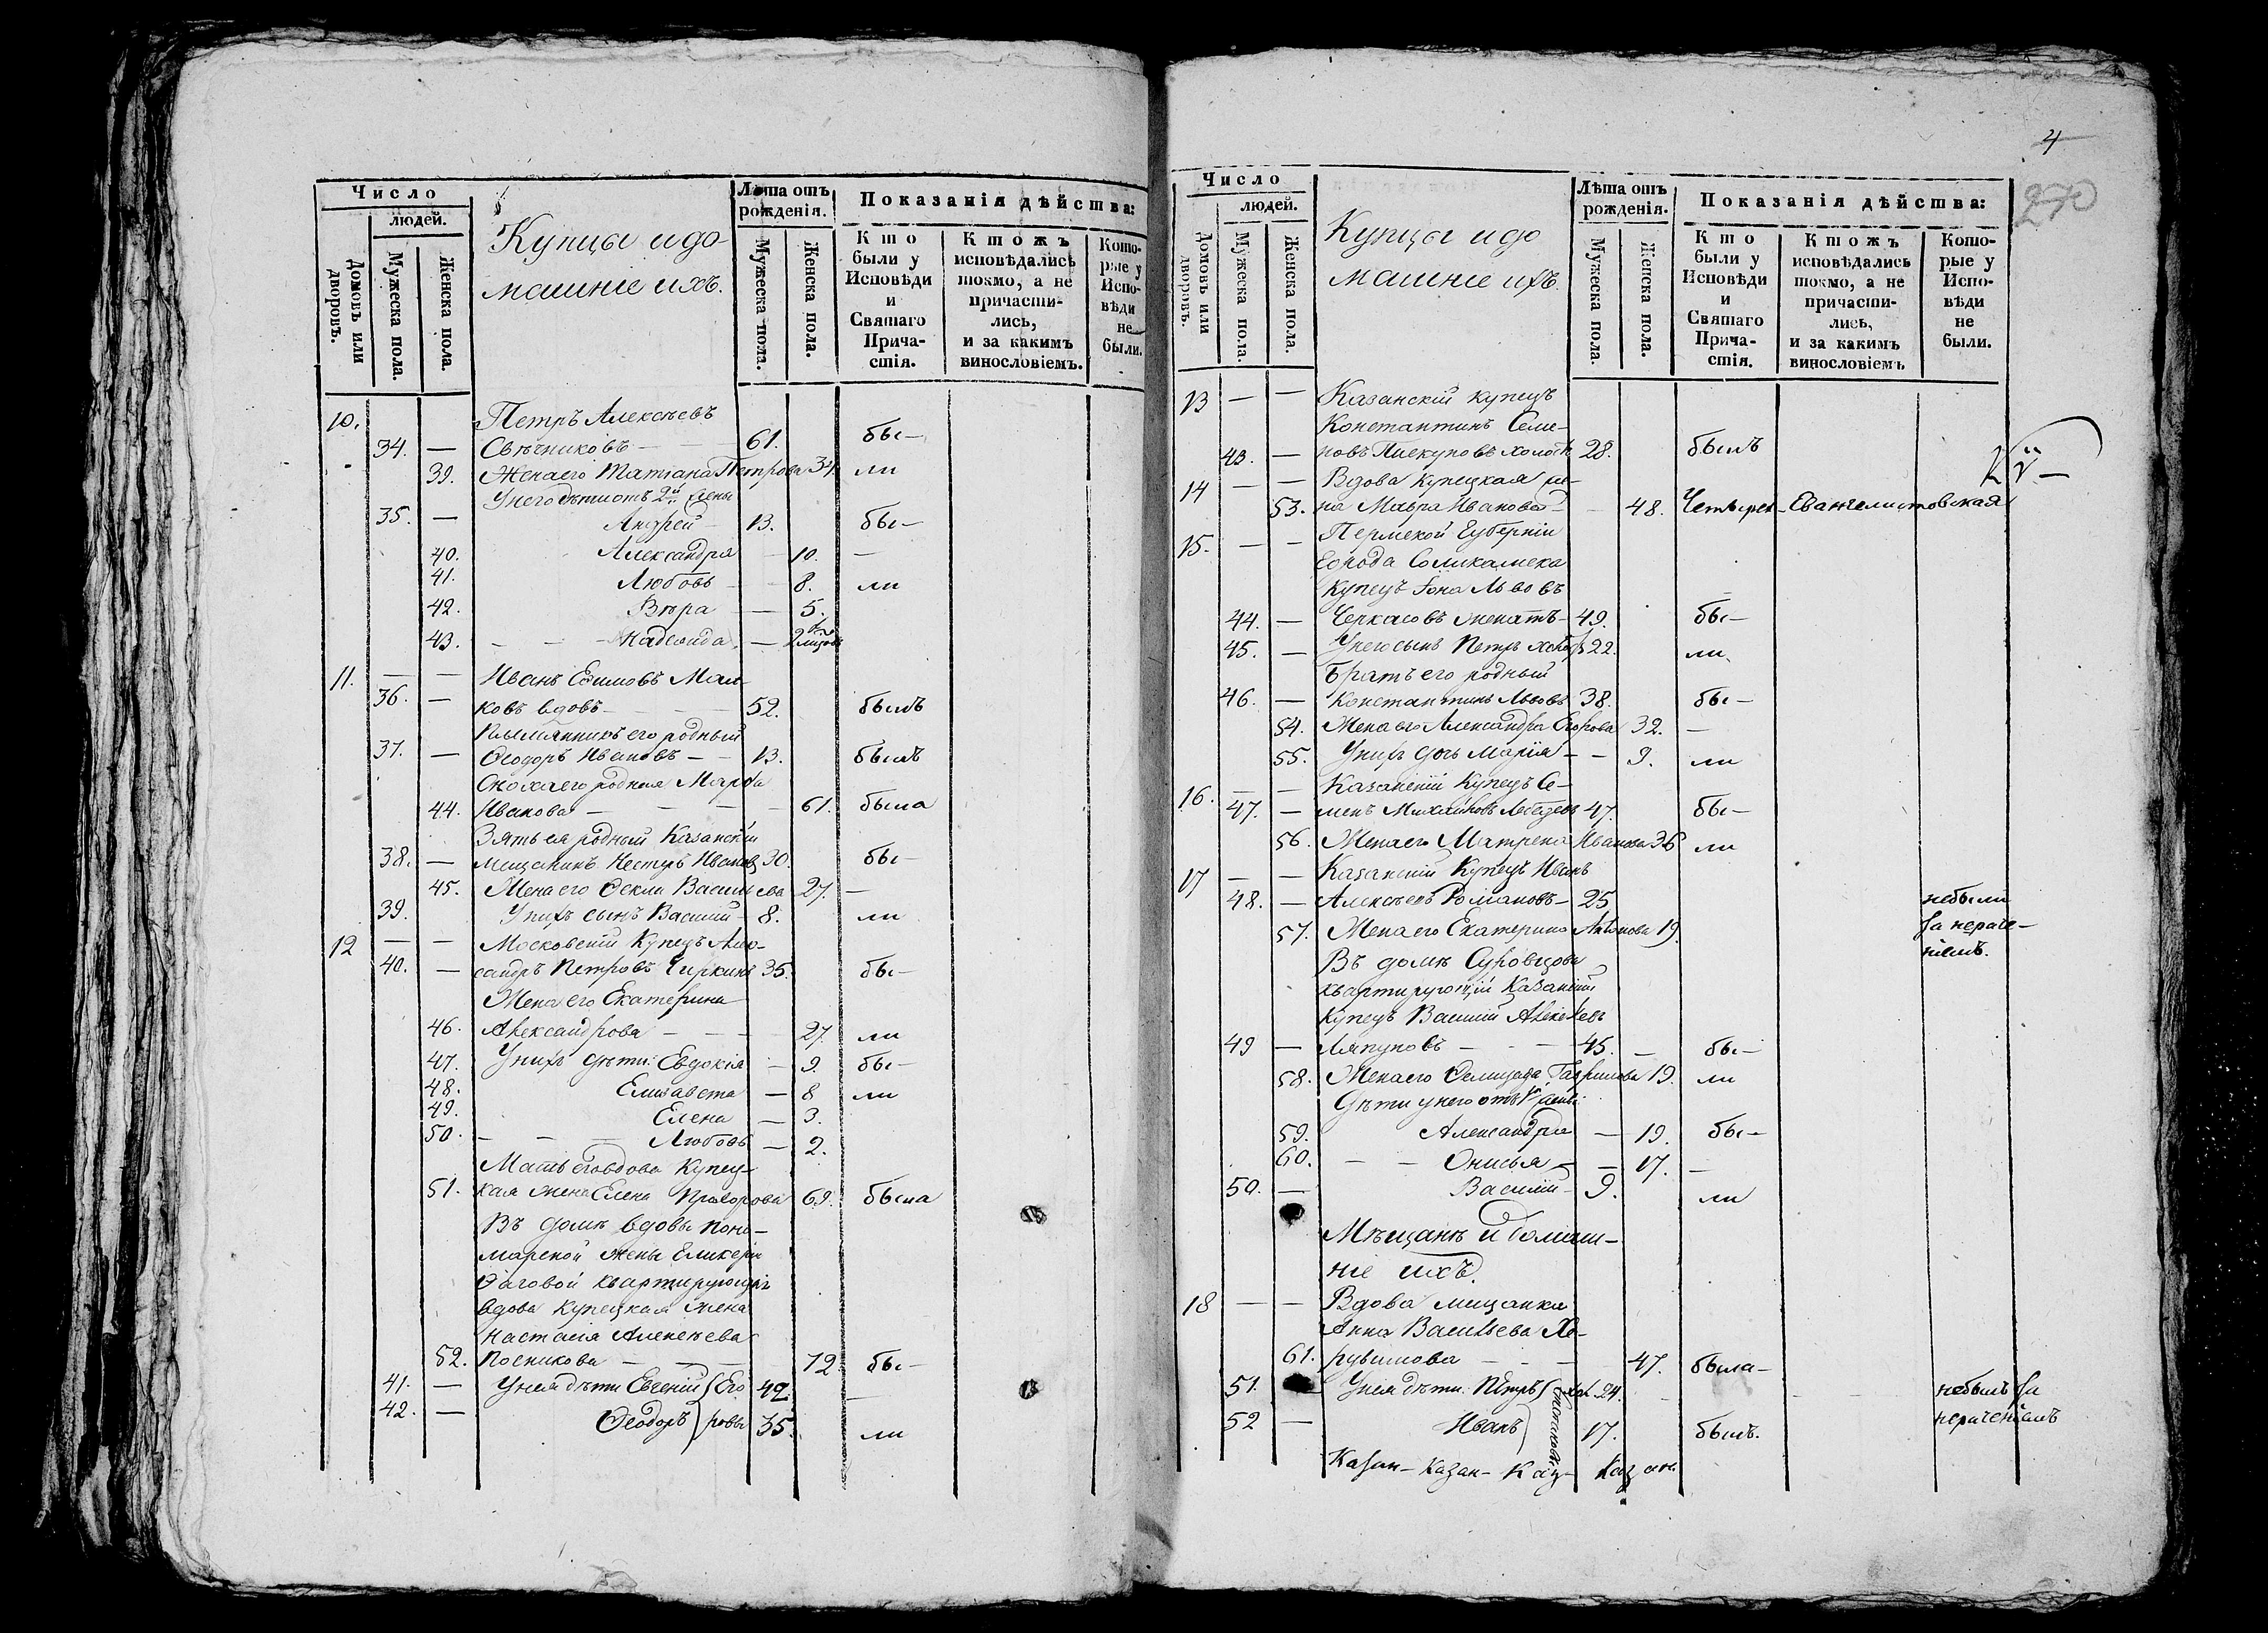 Число
людей.
Домовъ или дворовъ.
Мужеска пола.
Женска пола.
Купцы и до-
машніе ихъ.
Лѣта отъ рожденія.
Мужеска пола.
Женска пола.
Показанія дѣйства:
Кто были у Исповѣди и Святаго Прича-стія.
Ктожъ исповѣдались токмо, а не причасти-лись, и за какимъ винословіемъ.
Кото-рые у Испо-вѣди не были.
10. Петръ Алексѣевъ
34. — Свѣчниковъ — 61. бы—
39. Жена его Татіана Петрова 34. ли
У него дѣти отъ 2й жены
35. — Андрей — 13. бы—
40. Александра — 10. —
41. Любовь — 8. ли
42. Вѣра — 5.
43. — — Надежда — 2
11. — — Иванъ Ефимовъ Мал-
36. — ковъ вдовъ — 52. былъ
Племянникъ его родный
37. — Ѳеодоръ Ивановъ — — 13. былъ
Сноха его родная Марѳа
44. Иванова — — — 61. была
Зять ея родный Казанскій
38. — мещанинъ Несторъ Ивановъ 30. бы—
45. Жена его Ѳекла Васильева 27. —
39. У нихъ сынъ Василій — 8. ли
12 — — Московскій Купецъ Алек-
40. — сандръ Петровъ Чиркинъ 35. бы—
Жена его Екатерина
46. Александрова — — — 27. ли
47. У нихъ дѣти: Евдокія — 9. бы—
48. Елизавета — 8 ли
49. Елена — 3.
50. — — — Любовь — 2.
Мать его вдова Купец-
51. кая жена Елена Прохорова 69. была
Въ домѣ вдовы поно-
марской жены Гликеріи
квартирующая
вдова Купецкая жена
Настасія Алексѣева
52. Посникова — — — 72. бы—
41. — У нея дѣти Евгеній (Его 42. —
42. — Ѳеодоръ) ровы 35. ли
4
270
Число
людей.
Домовъ или дворовъ.
Мужеска пола.
Женска пола.
Купцы и до
машніе ихъ.
Лѣта отъ рожденія.
Мужеска пола.
Женска пола.
Показанія дѣйства:
Кто были у Исповѣди и Святаго Прича-стія.
Ктожъ исповѣдались токмо, а не причасти-лись, и за какимъ винословіемъ
Кото-рые у Испо-вѣди не были.
13 — — Казанскій купецъ
Константинъ Семе-
43. — новъ Пискуновъ холостъ 28. былъ
14 — — Вдова Купецкая же-
53. на Мавра Иванова — 48. Четырех-Евангелистовская
15. — — Пермской Губерніи
города Соликамска
Купецъ Іона Львовъ
44. — Черкасовъ женатъ — 49. бы—
45. — У него сынъ Петръ холос 22. ли
Братъ его родный
46. — Константинъ Львовъ 38. бы—
54. Жена его Александра Егорова 32. —
55. У нихъ дочь Марія — — 9. ли
16. — — Казанскій Купецъ Се-
47. — менъ Михайловъ Лебедевъ 47. бы—
56. Жена его Матрена Иванова 36 ли
17 — — Казанскій Купецъ Иванъ
48. — Алексѣевъ Романовъ — 25 небыли
57. Жена его Екатерина Антонова 19. за нераче-
ніемъ.
Въ домѣ Суровцова
квартирующій Казанскій
Купецъ Василій Алексѣевъ
49 — Ляпуновъ — — — 45. — бы—
58. Жена его Фелицада Гаврилова 19. ли
Дѣти у него отъ 1й жены:
59. Александра — 19. бы—
60. — — Онисья — — 17. —
50. — Василій — 9. ли
Мѣщанъ и домаш-
ніе ихъ.
18 — — Вдова мещанка
Анна Васильева Хе-
61. рувимова — — — 47. была—
51. У нея дѣти: Петръ хол. 24. небылъ за
52 — Иванъ 17. былъ. нераченіемъ
Казан— Казан— Каз— Казань